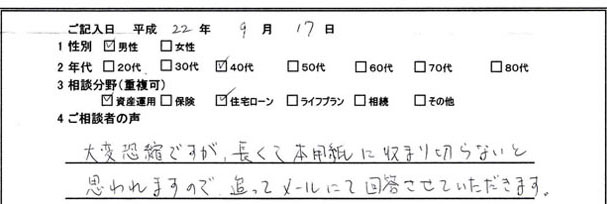 ご記入日 平成 22 年 9 月 17 日
1 性別 ☑男性 □女性
2 年代 □20代 □30代 ☑40代 □50代 □60代 □70代 □80代
3 相談分野(重複可)
☑資産運用 □保険 ☑住宅ローン □ライフプラン □相続 □その他
4 ご相談者の声
大変恐縮ですが、長くて本用紙に収まり切らないと
思われますので、追ってメールにて回答させていただきます。